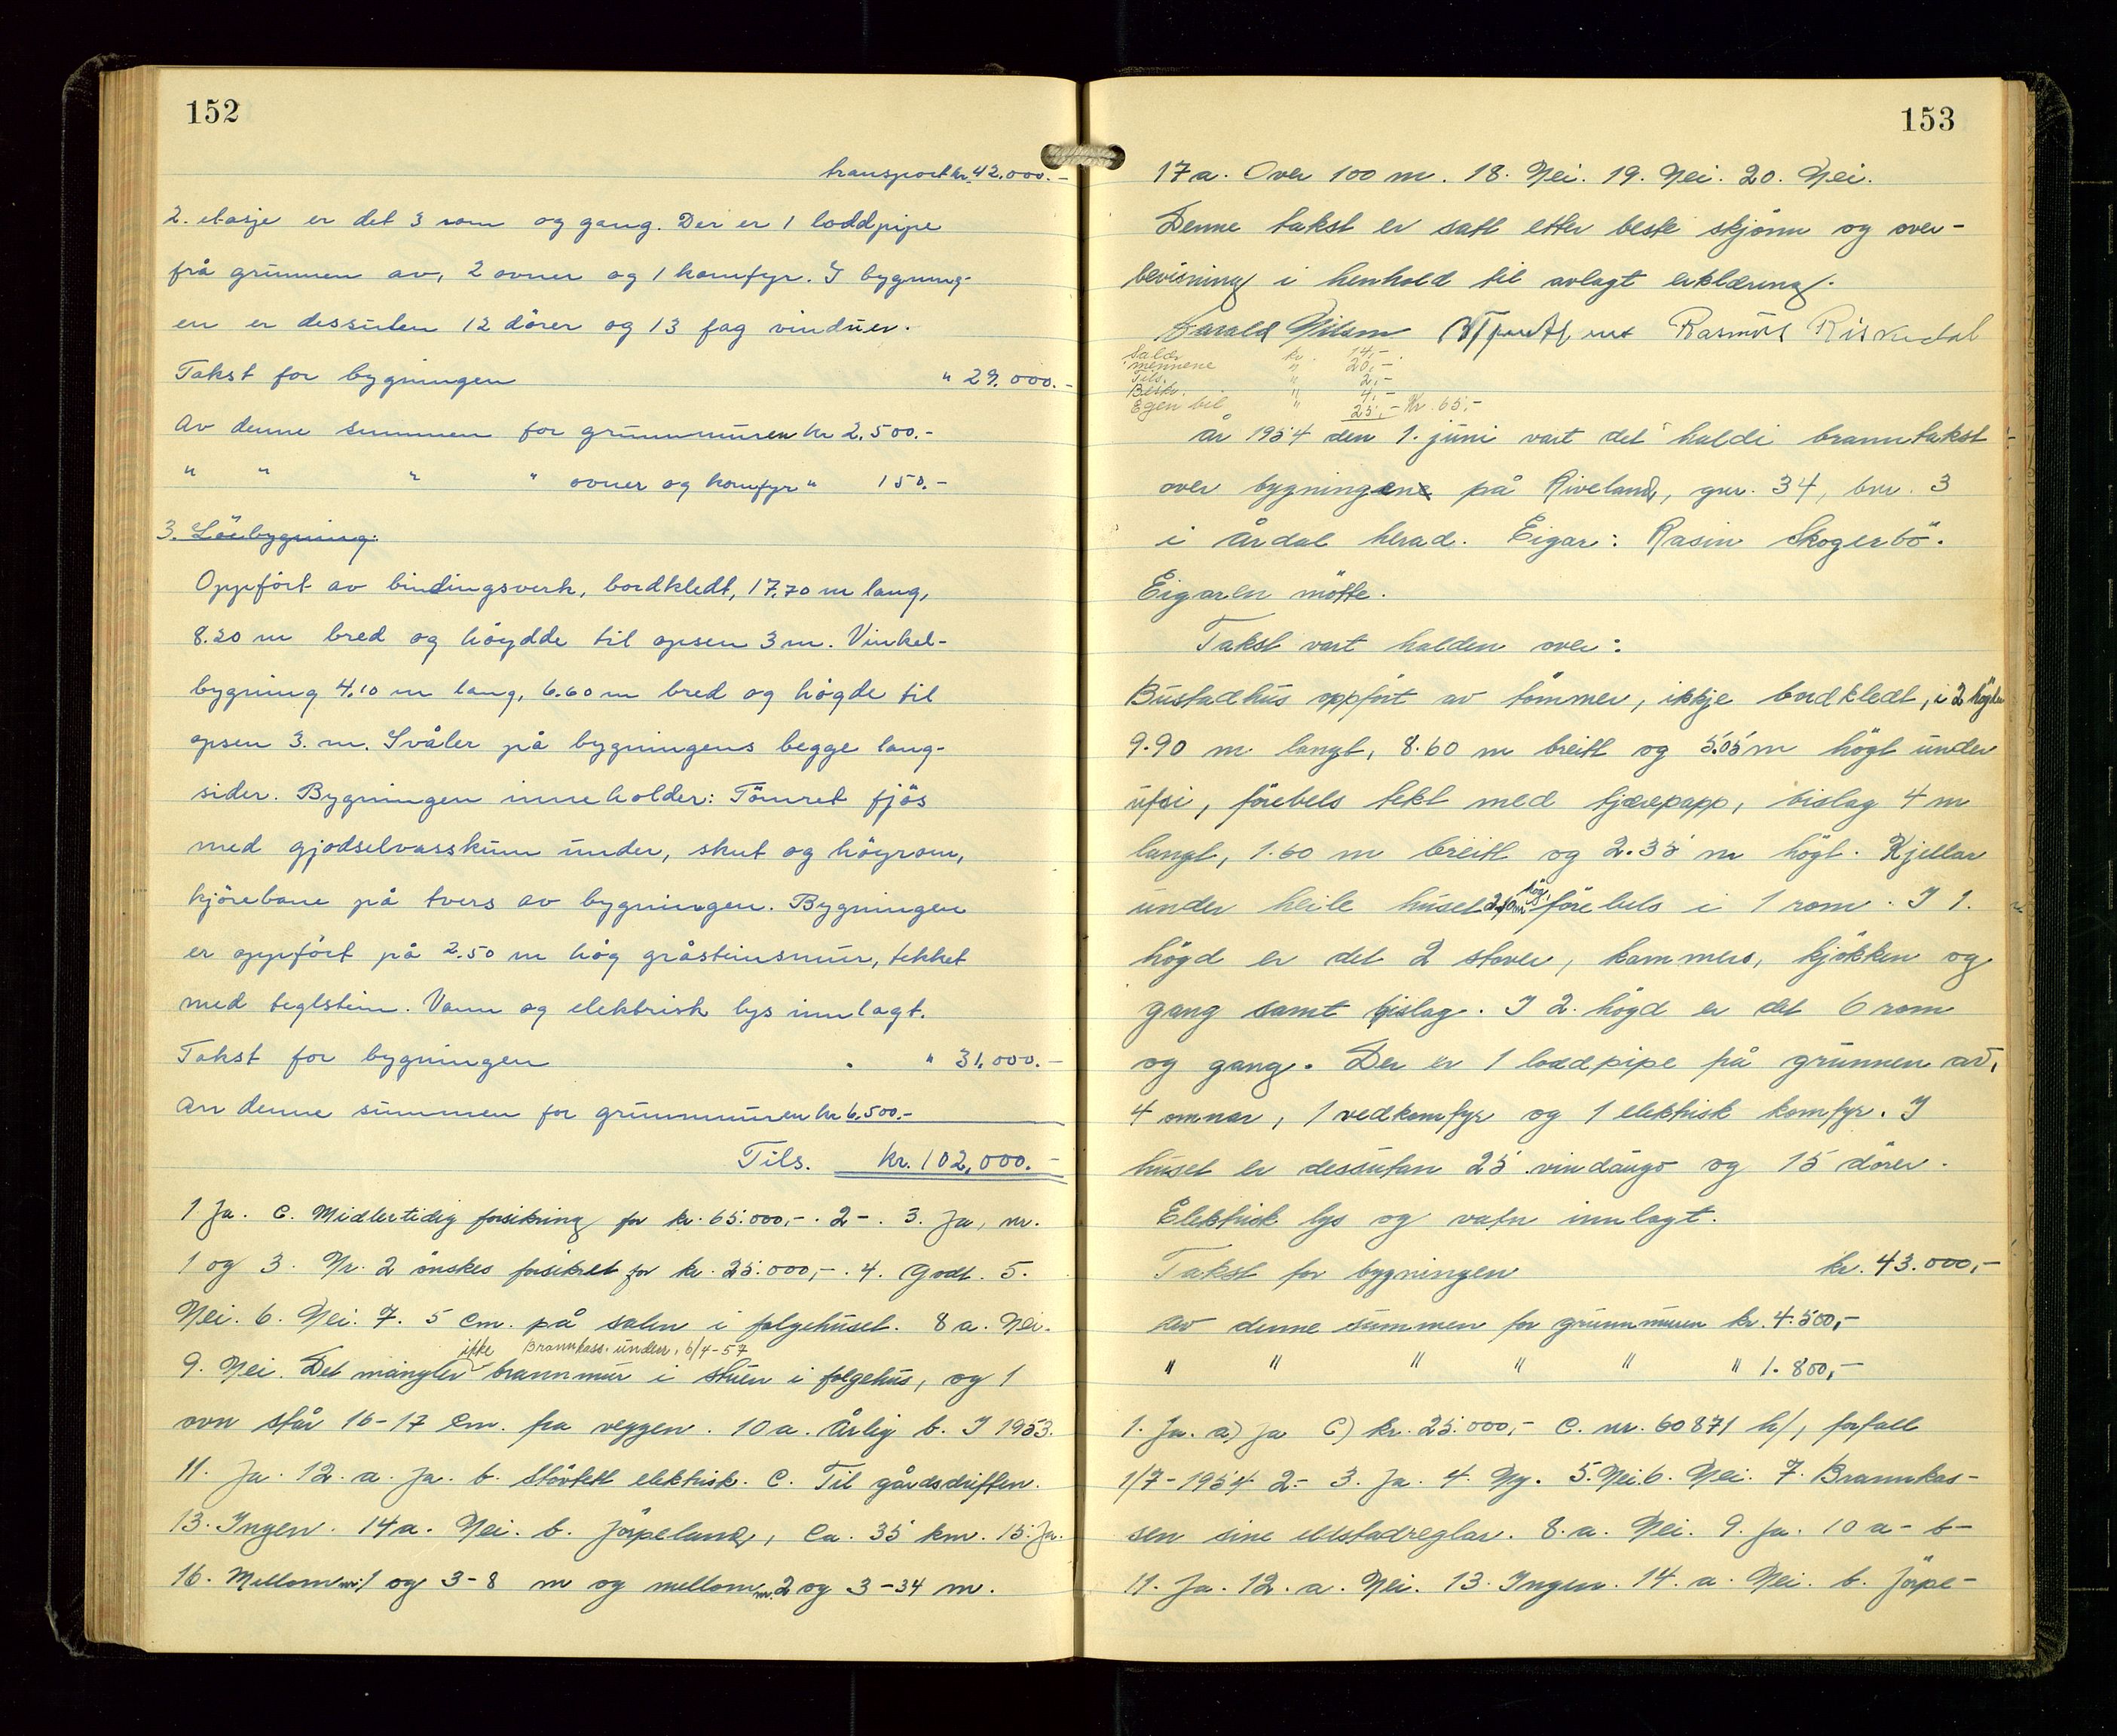 152
transport kr. 42.000.-
2. etasje er det 3 rom og gang. Der er 1 loddpipe
frå grunnen av, 2 ovner og 1 komfyr. I bygning-
en er dessuten 12 dörer og 13 fag vinduer.
Takst for bygningen " 29.000.-
Av denne summen for grunnmuren kr 2.500.-
" " " " ovner og komfyr " 150.-
3. Löebygning:
Oppfört av bindingsverk, bordkledt, 17.70 m lang,
8.20 m bred og höydde til opsen 3 m. Vinkel-
bygning 4.10 m lang, 6.60 m bred og högde til
opsen 3. m. Svåler på bygningens begge lang-
sider. Bygningen inneholder: Tömret fjös
med gjödselvasskum under, skut og höyrom,
kjörebane på tvers av bygningen. Bygningen
er oppfört på 2.50 m hög gråsteinsmur, tekket
med teglstein. Vann og elektrisk lys innlagt.
Takst for bygningen " 31.000.-
Av denne summen for grunnmuren kr 6.500.-
Tils. kr. 102.000.-
1. Ja. C. Midlertidig forsikring for kr. 65.000,-. 2-. 3. Ja, nr.
1 og 3. Nr. 2 önskes forsikret for kr. 25.000,-. 4. Godt. 5.
Nei. 6. Nei. 7. 5 cm. på salen i folgehuset. 8 a. Nei.
ikke Brannkass. unders. 6/4-57
9. Nei. Det mangler brannmur i stuen i folgehus, og 1
ovn står 16-17 cm. fra veggen. 10 a. Årlig b. I 1953.
11. Ja. 12. a. Ja. b. Stövtett elektrisk. C. Til gårdsdriften.
13. Ingen. 14 a. Nei. b. Jörpeland, ca. 35 km. 15. Ja.
16. Mellom nr. 1 og 3-8 m og mellom nr. 2 og 3-34 m.
153
17 a. Over 100 m. 18. Nei. 19. Nei. 20. Nei.
Denne takst er satt etter beste skjönn og over-
bevisning i henhold til avlagt erklæring.
Harald Nilsen Rasmus Riskedal
Salær kr. 14,-
mennene " 20,-
Tils. " 2,-
Beskr. " 4,-
Egen bil " 25,- Kr. 65,-
År 1954 den 1. juni vart det haldi branntakst
over bygningene på Riveland, gnr. 34, bnr. 3
i Årdal herad. Eigar: Rasin Skogerbö.
Eigaren mötte.
Takst vart halden over:
Bustadhus oppfört av tömmer, ikkje bordkledt, i 2 högder
9.90 m langt, 8.60 m breitt og 5.05 m högt under
ufsi, förebels tekt med tjærepapp, bislag 4 m
langt, 1.60 m breitt og 2.35 m högt. Kjellar
under heile huset 2,10 m hög, förebels i 1 rom. I 1.
högd er det 2 stover, kammers, kjökken og
gang samt bislag. I 2. högd er det 6 rom
og gang. Der er 1 loddpipe frå grunnen av,
4 omnar, 1 vedkomfyr og 1 elektrisk komfyr. I
huset er dessutan 25 vindaugo og 15 dörer.
Elektrisk lys og vatn innlagt.
Takst for bygningen kr. 43.000,-
Av denne summen for grunnmuren kr. 4.500,-
" " " " " " 1.800,-
1. Ja. a) Ja C) kr. 25.000,- C. nr. 60871 h/, forfall
1/7-1954 2.- 3. Ja. 4. Ny. 5. Nei. 6. Nei. 7. Brannkas-
sen sine eldstadreglar. 8. a. Nei. 9. Ja. 10 a- b-
11. Ja. 12. a. Nei. 13. Ingen. 14. a. Nei. b. Jörpe-